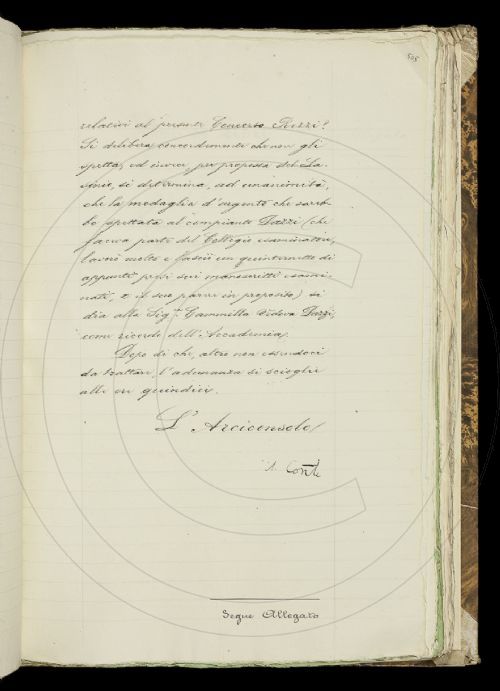 505
relativi al presente Concorso Rezzi?
Si delibera concordemente che non gli
spetta, ed invece, per proposta del La-
sinio, si determina, ad unanimità,
che la medaglia d'argento che sareb-
be spettata al compianto Dazzi (che
faceva parte del Collegio esaminatore,
lavorò molto e lasciò un quinternetto di
appunti presi sui manoscritti esami-
nati, e il suo parere in proposito) si
dia alla Sig.ra Cammilla vedova Dazzi,
come ricordo dell'Accademia.
Dopo di che, altro non essendoci
da trattare, l'adunanza si scioglie
alle ore quindici.
L'Arciconsolo
A. Conti
Segue Allegato